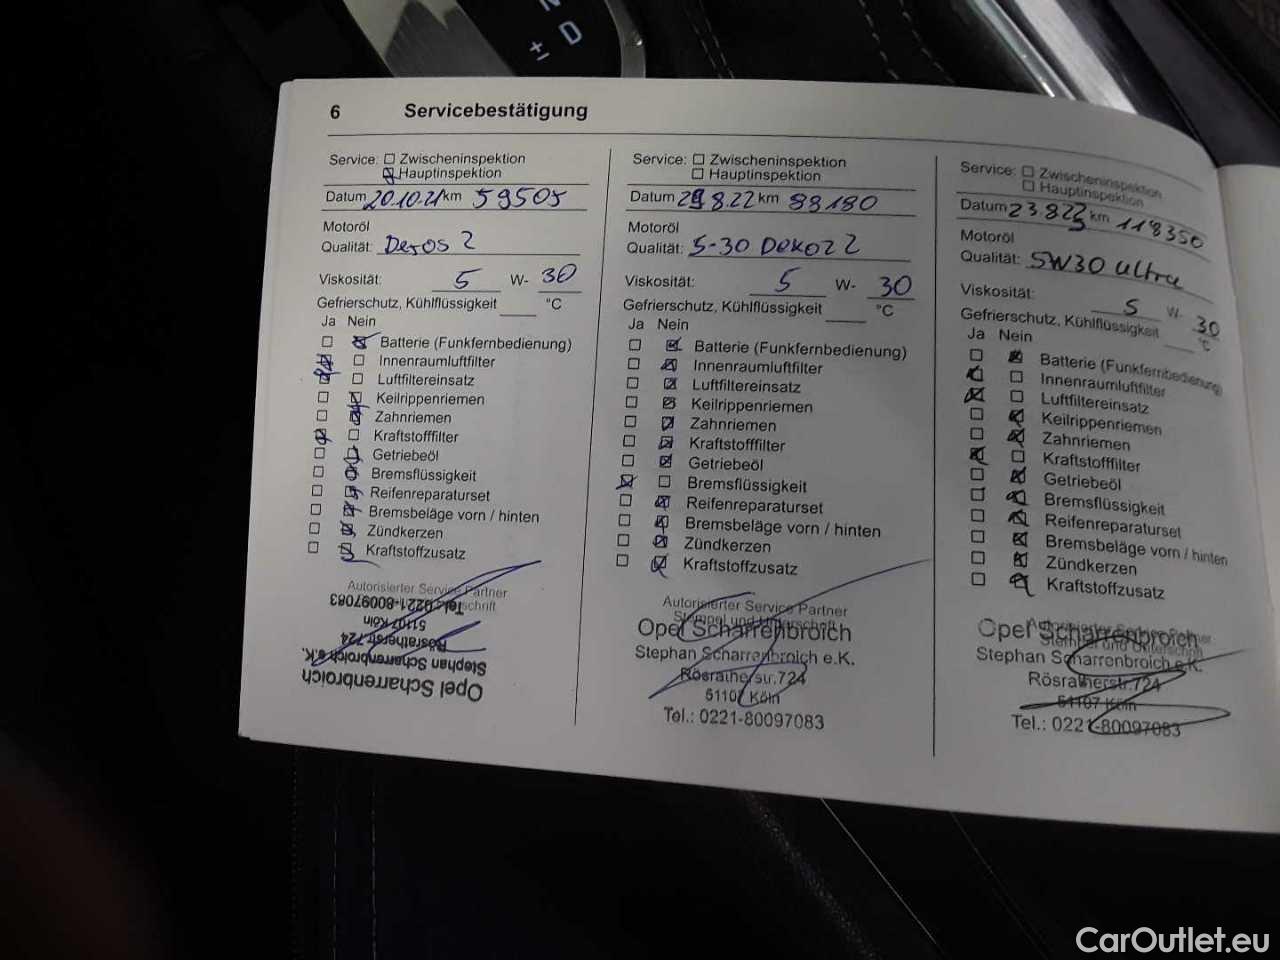 N
D
+/-
6 Servicebestätigung
Service: Zwischeninspektion
Hauptinspektion
Datum 20.10.21 km 59505
Motoröl
Qualität: Dexos 2
Viskosität: 5 W- 30
Gefrierschutz, Kühlflüssigkeit °C
Ja Nein
Batterie (Funkfernbedienung)
Innenraumluftfilter
Luftfiltereinsatz
Keilrippenriemen
Zahnriemen
Kraftstofffilter
Getriebeöl
Bremsflüssigkeit
Reifenreparaturset
Bremsbeläge vorn / hinten
Zündkerzen
Kraftstoffzusatz
Autorisierter Service Partner
Opel Scharrenbroich
Stephan Scharrenbroich e.K.
Rösratherstr.724
51107 Köln
Tel.: 0221-80097083
Service: Zwischeninspektion
Hauptinspektion
Datum 29 8.22 km 88180
Motoröl
Qualität: 5-30 Dexos 2
Viskosität: 5 W- 30
Gefrierschutz, Kühlflüssigkeit °C
Ja Nein
Batterie (Funkfernbedienung)
Innenraumluftfilter
Luftfiltereinsatz
Keilrippenriemen
Zahnriemen
Kraftstofffilter
Getriebeöl
Bremsflüssigkeit
Reifenreparaturset
Bremsbeläge vorn / hinten
Zündkerzen
Kraftstoffzusatz
Autorisierter Service Partner
Stempel und Unterschrift
Opel Scharrenbroich
Stephan Scharrenbroich e.K.
Rösratherstr.724
51107 Köln
Tel.: 0221-80097083
Service: Zwischeninspektion
Hauptinspektion
Datum 23.8.23 km 118350
Motoröl
Qualität: 5W30 Ultra
Viskosität: 5 W- 30
Gefrierschutz, Kühlflüssigkeit °C
Ja Nein
Batterie (Funkfernbedienung)
Innenraumluftfilter
Luftfiltereinsatz
Keilrippenriemen
Zahnriemen
Kraftstofffilter
Getriebeöl
Bremsflüssigkeit
Reifenreparaturset
Bremsbeläge vorn / hinten
Zündkerzen
Kraftstoffzusatz
Autorisierter Service Partner
Stempel und Unterschrift
Opel Scharrenbroich
Stephan Scharrenbroich e.K.
Rösratherstr.724
51107 Köln
Tel.: 0221-80097083
CarOutlet.eu